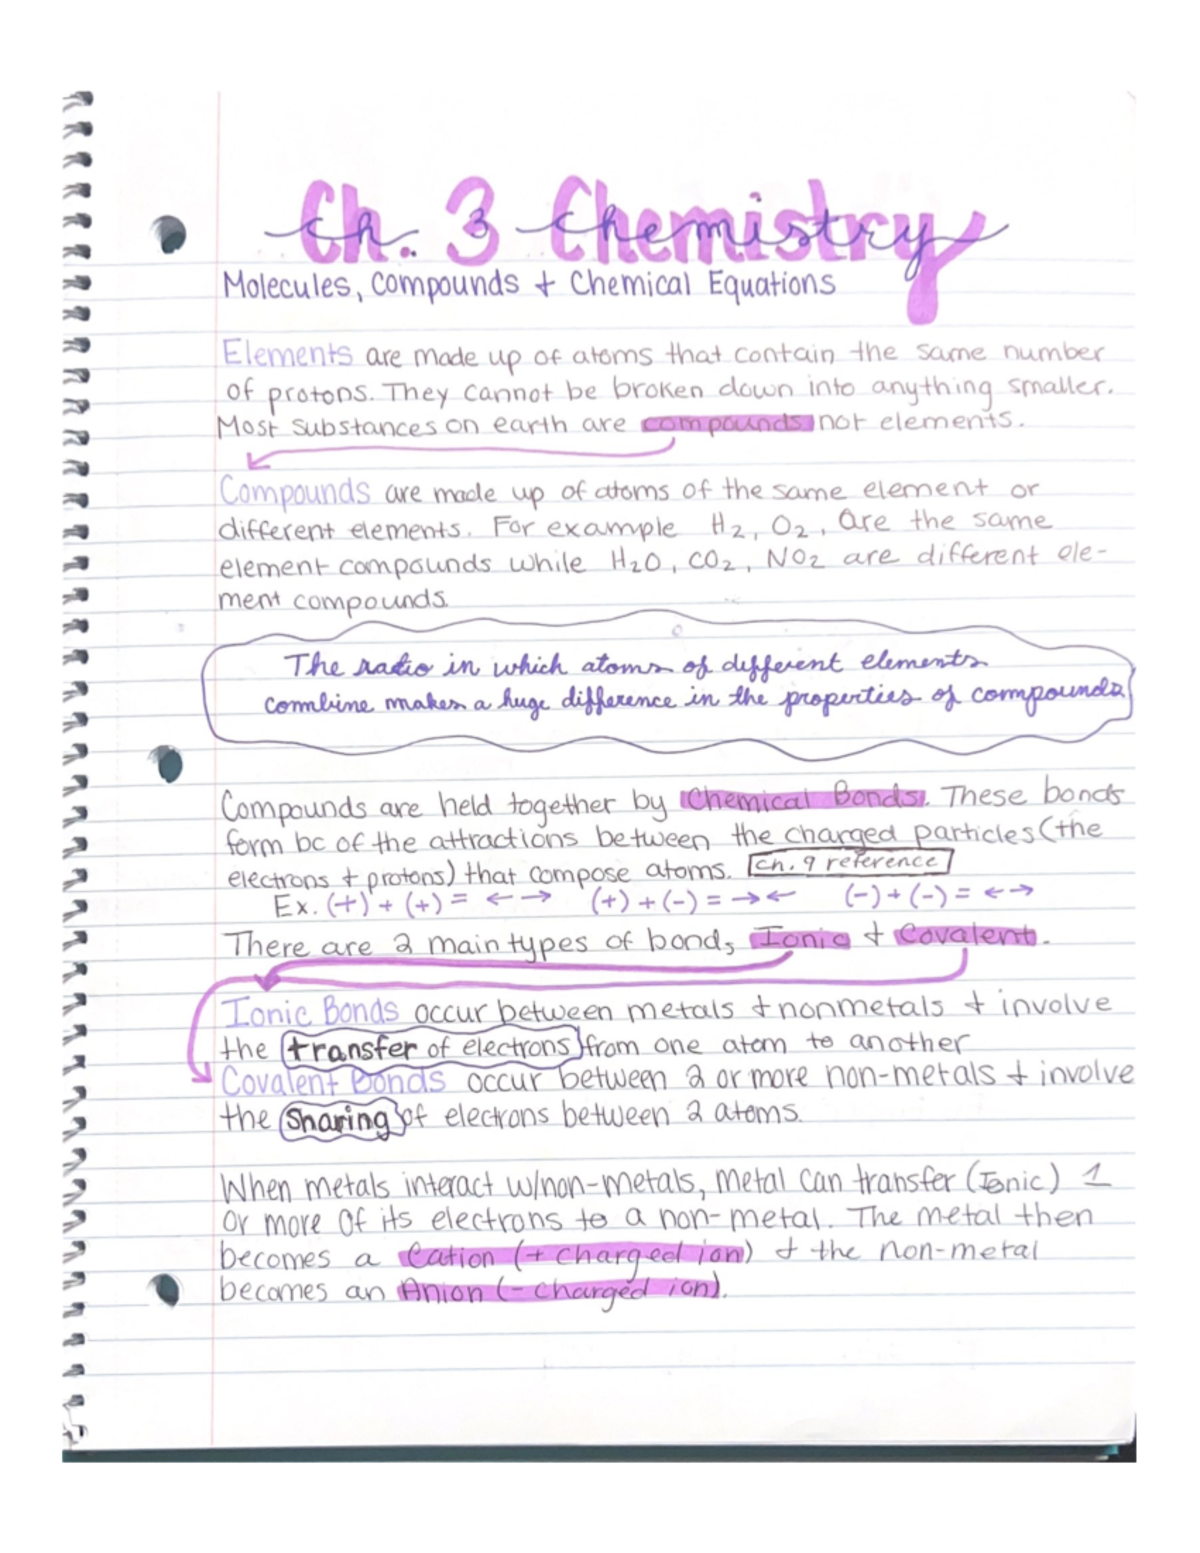 Ch. 3 Chemistry
Molecules, Compounds + Chemical Equations
Elements are made up of atoms that contain the same number
of protons. They cannot be broken down into anything smaller.
Most substances on earth are compounds not elements.
Compounds are made up of atoms of the same element or
different elements. For example H₂, O₂, are the same
element compounds while H₂O, CO₂, NO₂ are different ele-
ment compounds.
The radio in which atoms of different elements
combine makes a huge difference in the properties of compounds
Compounds are held together by Chemical Bonds. These bonds
form bc of the attractions between the charged particles (the
electrons + protons) that compose atoms. Ch. 9 reference
Ex. (+) + (+) = ←→ (+) + (-) = →← (-) + (-) = ←→
There are 2 main types of bond, Ionic + Covalent.
Ionic Bonds occur between metals + nonmetals + involve
the transfer of electrons from one atom to another
Covalent Bonds occur between 2 or more non-metals + involve
the Sharing of electrons between 2 atoms.
When metals interact w/non-metals, metal can transfer (Ionic) 1
or more of its electrons to a non-metal. The metal then
becomes a Cation (+ charged ion) + the non-metal
becomes an Anion (- charged ion).